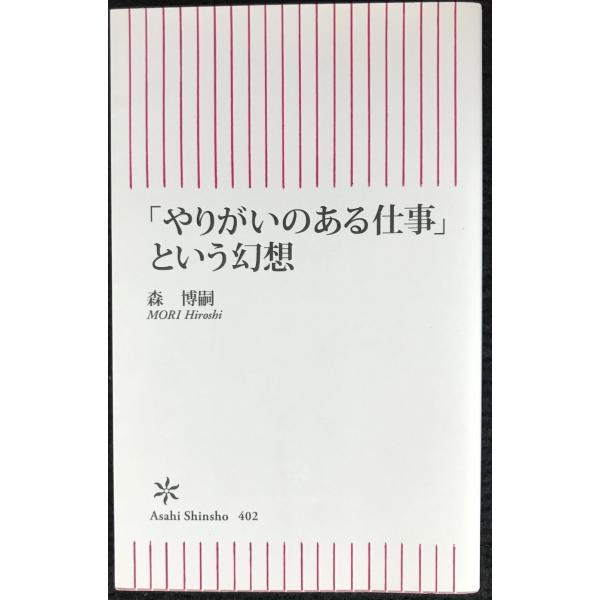 「やりがいのある仕事」
という幻想
森 博嗣
MORI Hiroshi
Asahi Shinsho 402